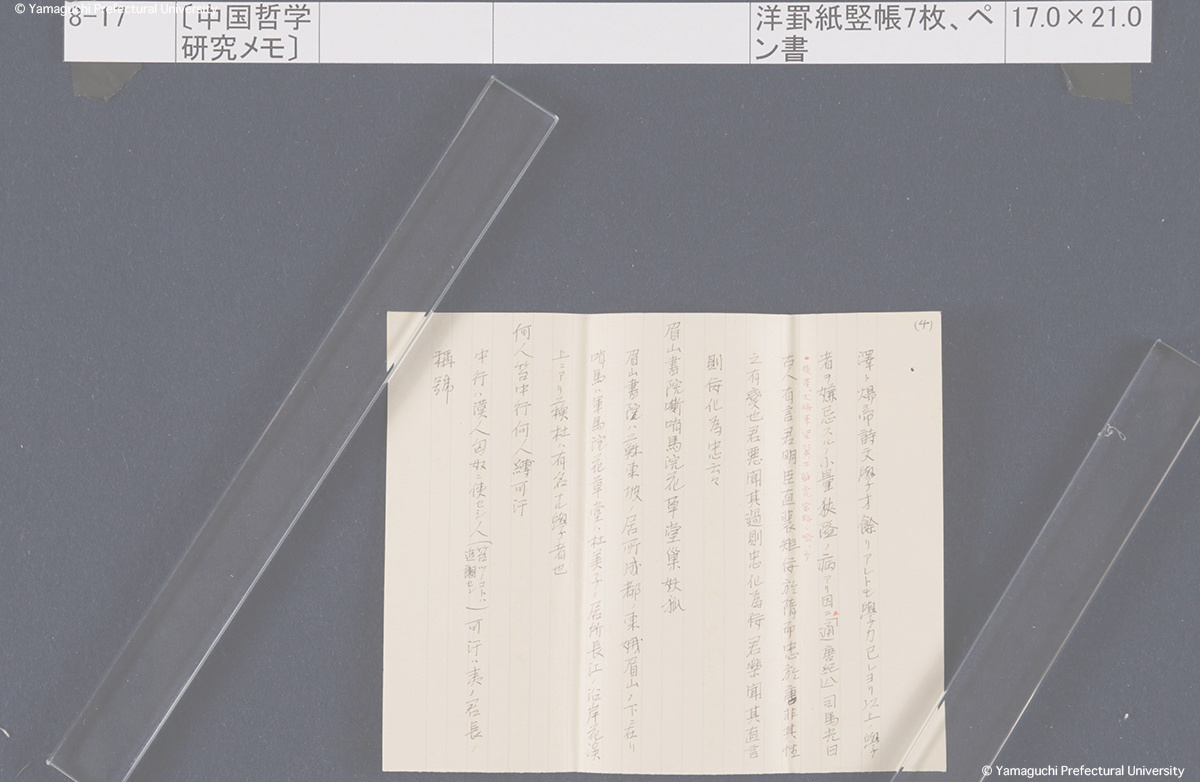 © Yamaguchi Prefectural University
8-17
〔中国哲学
研究メモ〕
洋罫紙竪帳7枚、ペ
ン書
17.0×21.0
(4)
澤ト煬帝詩文學才餘リアレトモ學力己レヨリ以上ノ學
者ヲ嫌忌スルノ小量狭隘ノ病アリ因ニ「通唐紀」司馬光曰
古人有言君明臣直裴矩佞於隋而忠於唐非其性
之有変也君悪聞其過則忠化為佞君樂聞其直言
則佞化為忠云々
眉山書院嘶哨馬浣花草堂巣妖狐
眉山書院ハ三蘇東坡ノ居所成都ノ東峨眉山ノ下ニ在リ
哨馬ハ軍馬浣花草堂ハ杜美子ノ居所長江ノ沿岸花溪
上ニアリ三蘇杜ハ有名ナル學者也
何人笞中行何人縛可汗
中行ハ漢人匈奴ニ使セシ人 可汗ハ夷ノ君長ノ
稱號
© Yamaguchi Prefectural University